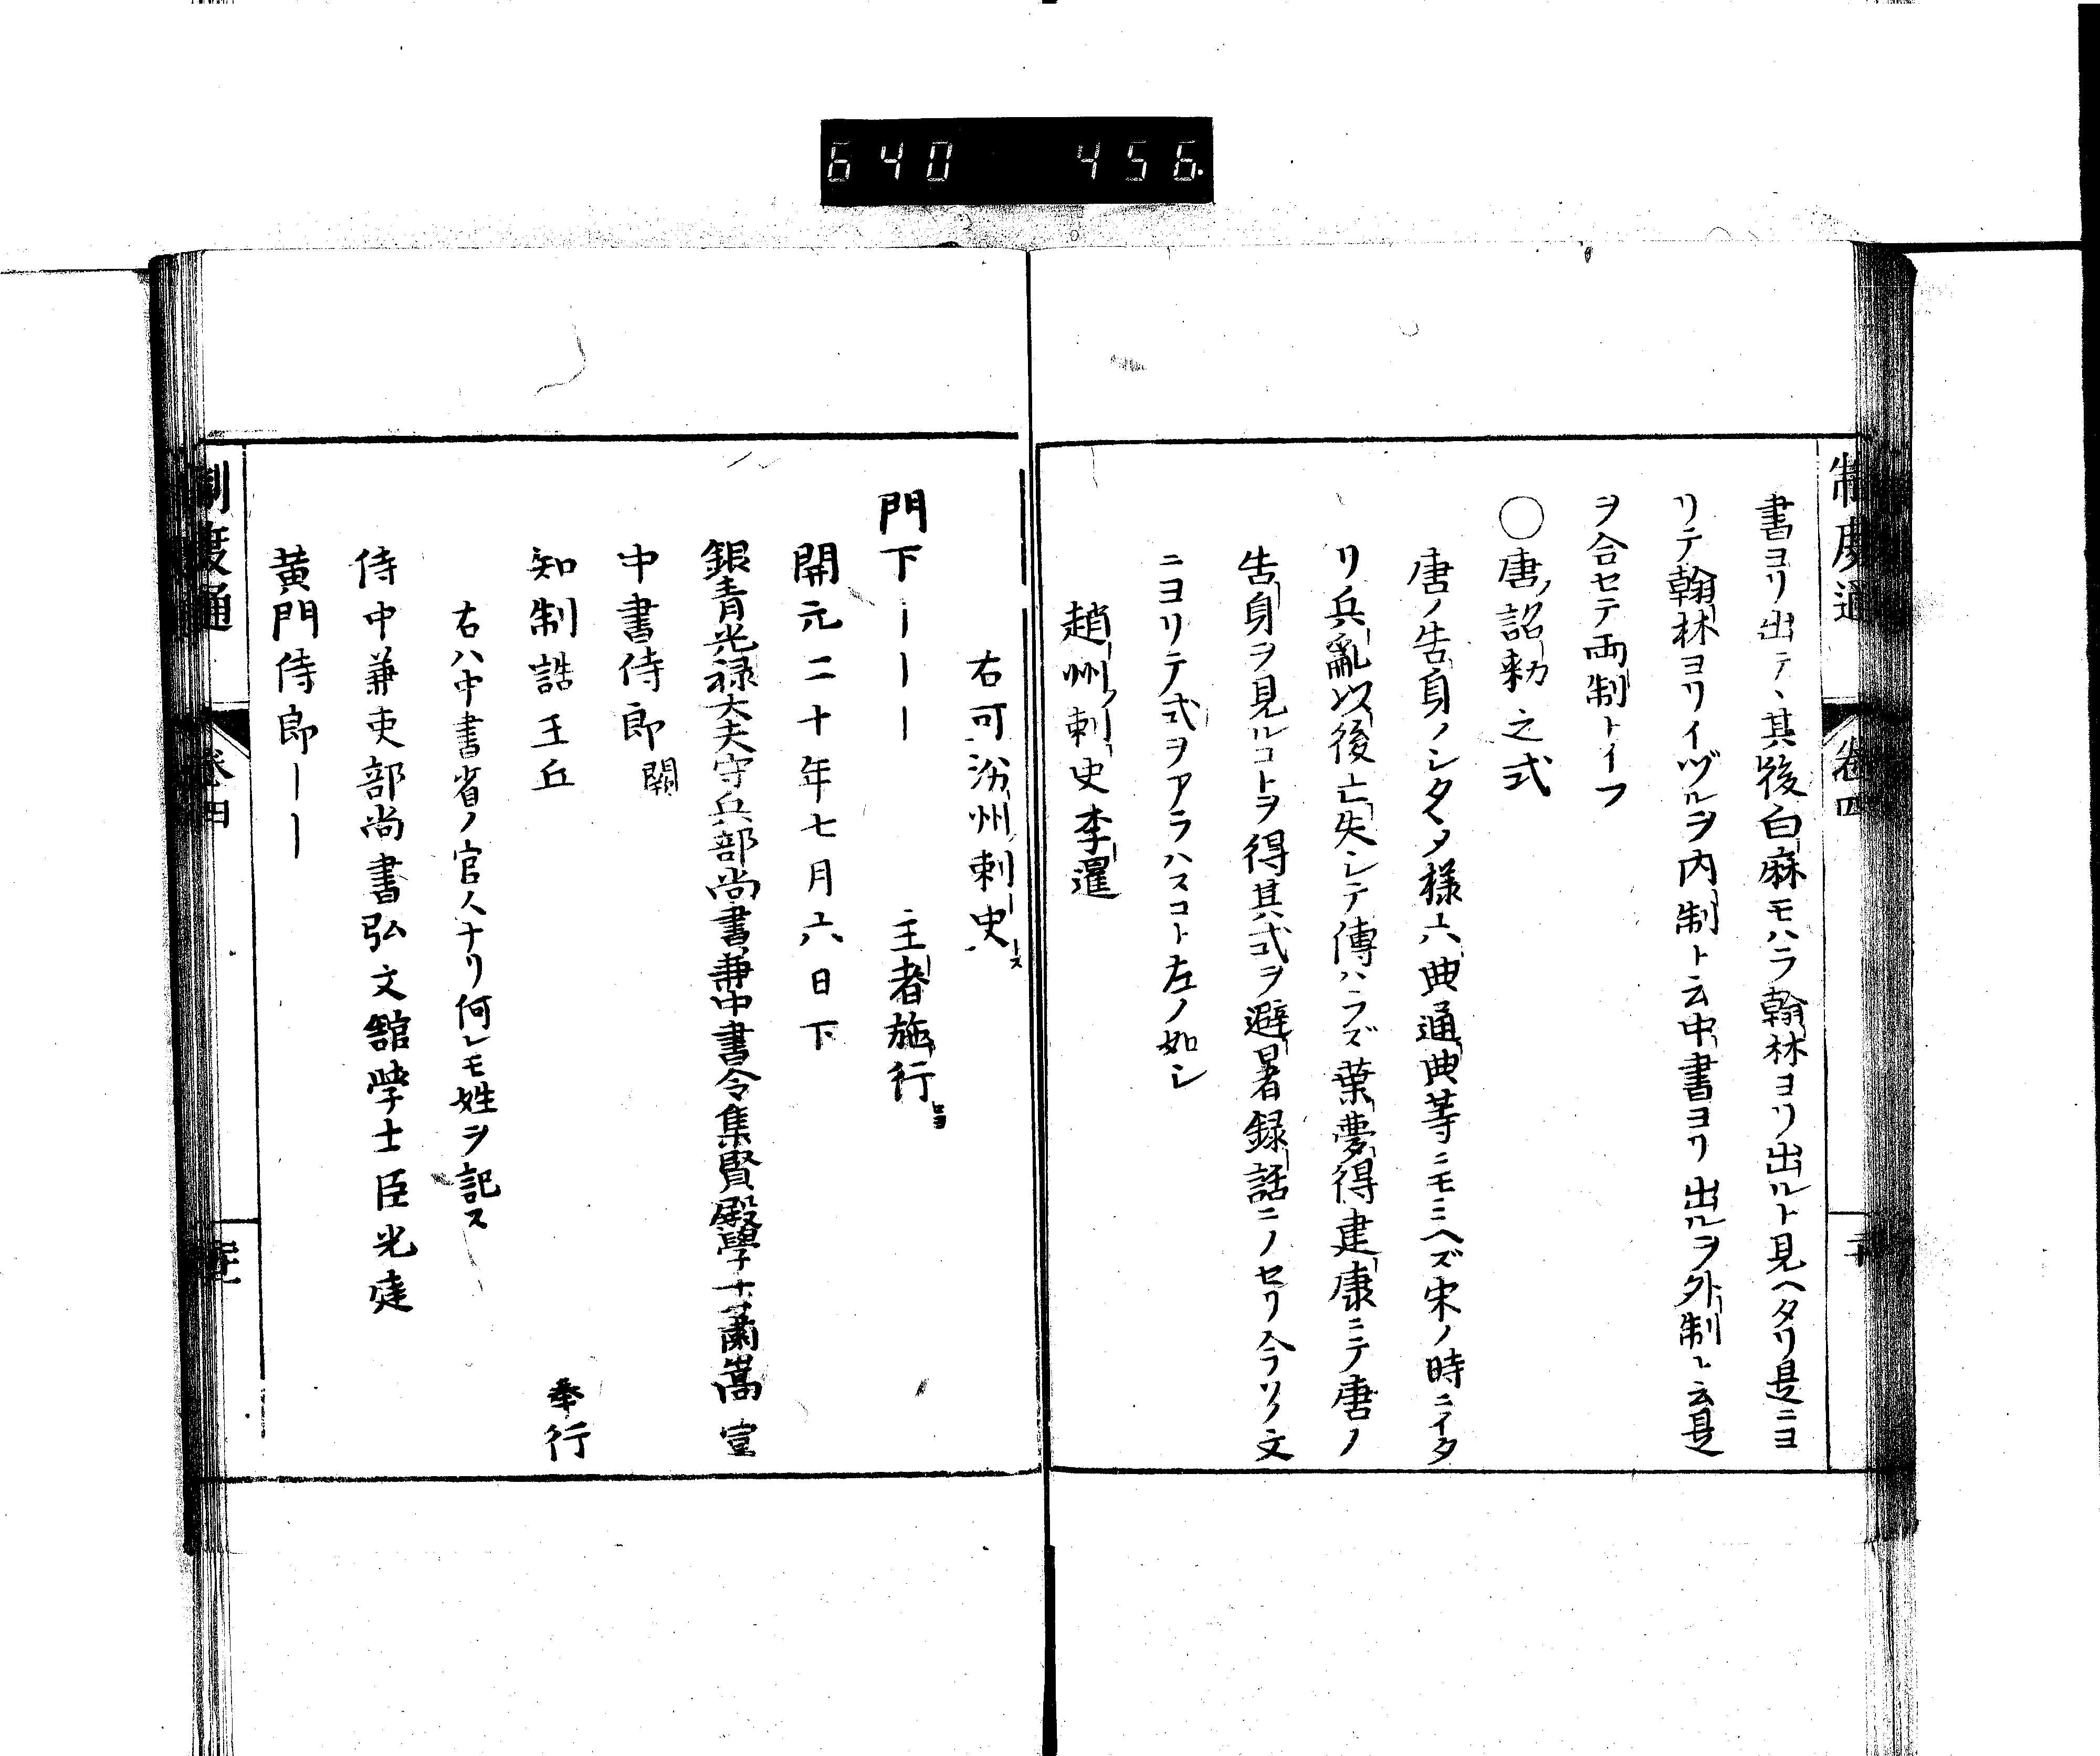 640 456.
制度通 卷四
書ヨリ出テ、其後白麻モハラ翰林ヨリ出ルト見ヘタリ是ニヨ
リテ翰林ヨリイヅルヲ内制ト云中書ヨリ出ルヲ外制ト云是
ヲ合セテ両制トイフ
〇唐ノ詔勅之式
唐ノ告身ノシタヽメ様六典通典等ニモミヘズ宋ノ時ニイタ
リ兵亂以後亡失シテ傳ハラズ葉夢得建康ニテ唐ノ
告身ヲ見ルコトヲ得其式ヲ避暑録話ニノセリ今ソノ文
ニヨリテ式ヲアラハスコト左ノ如シ
趙州ノ刺史李暹
右可汾州ノ刺史トス
門下ーーー 主者施行
開元二十年七月六日下
銀青光禄大夫守兵部尚書兼中書令集賢殿學士蕭嵩 宣
中書侍郎 闕
知制誥王丘 奉行
右ハ中書省ノ官人ナリ何レモ姓ヲ記ス
侍中兼吏部尚書弘文舘學士臣光庭
黄門侍郎ーー
制度通 卷四